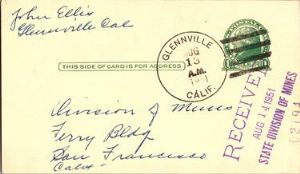 John Ellis
Glennville Cal
GLENNVILLE
AUG
13
A.M.
CALIF.
THIS SIDE OF CARD IS FOR ADDRESS
Division of Mines
Ferry Bldg
San Francisco
Calif
RECEIVED
AUG 14 1951
STATE DIVISION OF MINES